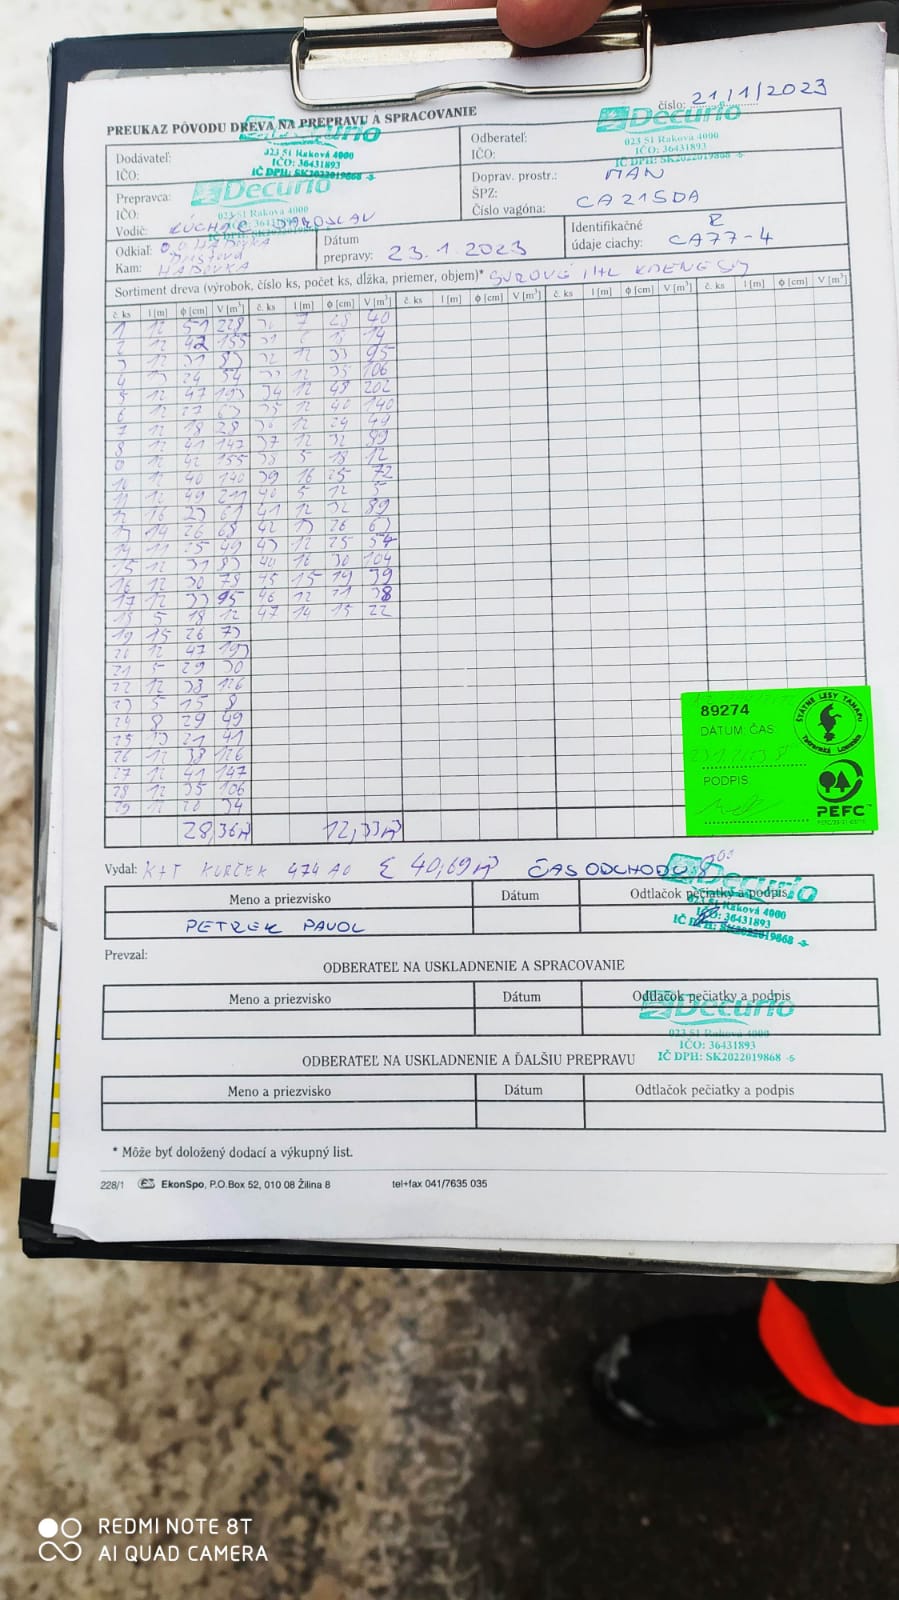 číslo: 21/1/2023
PREUKAZ PÔVODU DREVA NA PREPRAVU A SPRACOVANIE
Decurio
023 51 Raková 4000
IČO: 36431893
IČ DPH: SK2022019868 -5-
Dodávateľ:
IČO:
Decurio
023 51 Raková 4000
IČO: 36431893
IČ DPH: SK2022019868 -5-
Odberateľ:
IČO:
Prepravca:
IČO:
Decurio
023 51 Raková 4000
Vodič:
Doprav. prostr.: MAN
ŠPZ:
Číslo vagóna: CA215DA
Odkiaľ:
Kam: HABOVKA
Dátum
prepravy: 23.1.2023
Identifikačné
údaje ciachy: CA77-4
Sortiment dreva (výrobok, číslo ks, počet ks, dĺžka, priemer, objem)* SUROVÉ
č. ks l [m] ϕ [cm] V [m³] č. ks l [m] ϕ [cm] V [m³] č. ks l [m] ϕ [cm] V [m³] č. ks l [m] ϕ [cm] V [m³] č. ks l [m] ϕ [cm] V [m³]
1 12 51 228 7 28 40
2 12 42 155
3 12 31 83 12 33 95
12 35 106
5 12 47 193 34 12 48 202
6 12 27 63 35 12 40 140
7 12 18 28 36 12 24 49
8 12 41 147 37 12 32 89
12 42 155 38 5 18 12
10 12 40 140 39 16 25 72
11 12 49 211 40 5 12 5
12 16 23 61 41 12 32 89
13 14 26 68 42 13 26 63
14 11 25 49 43 12 25 54
15 12 31 83 30 104
16 12 30 78 45 15 19 39
17 12 33 95 46 12 21 38
18 5 18 12 47 14 15 22
19 15 26 73
12 47 193
21 5 29 30
22 12 38 126
23 5 15 8
24 8 29 49
25 13 21 41
26 12 38 126
27 12 41 147
28 12 35 106
29 12 20 34
28,36 12,33
89274
DÁTUM: ČAS
PODPIS
ŠTÁTNE LESY TANAPU
Tatranská Lomnica
PEFC
Vydal: 474 AO Σ 40,69 ČAS ODCHODU 8⁰⁰
Decurio
023 51 Raková 4000
IČO: 36431893
IČ DPH: SK2022019868 -5-
Meno a priezvisko Dátum Odtlačok pečiatky a podpis
PETREK PAVOL
Prevzal:
ODBERATEĽ NA USKLADNENIE A SPRACOVANIE
Meno a priezvisko Dátum Odtlačok pečiatky a podpis
Decurio
023 51 Raková 4000
IČO: 36431893
IČ DPH: SK2022019868 -5-
ODBERATEĽ NA USKLADNENIE A ĎALŠIU PREPRAVU
Meno a priezvisko Dátum Odtlačok pečiatky a podpis
* Môže byť doložený dodací a výkupný list.
228/1 EkonSpo, P.O.Box 52, 010 08 Žilina 8 tel+fax 041/7635 035
REDMI NOTE 8T
AI QUAD CAMERA